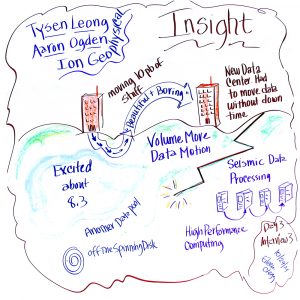 Tysen Leong
Aaron Ogden
Ion Geophysical
Insight
moving 10pb of
stuff
Beautiful + Boring
New Data
Center Had
to move data
without down
time
Excited
about
8.3
Volume Move
Data Motion
Seismic Data
Processing
Another Data Pool
offline Spinning Disk
High Performance
Computing
Day 3
Interview 3